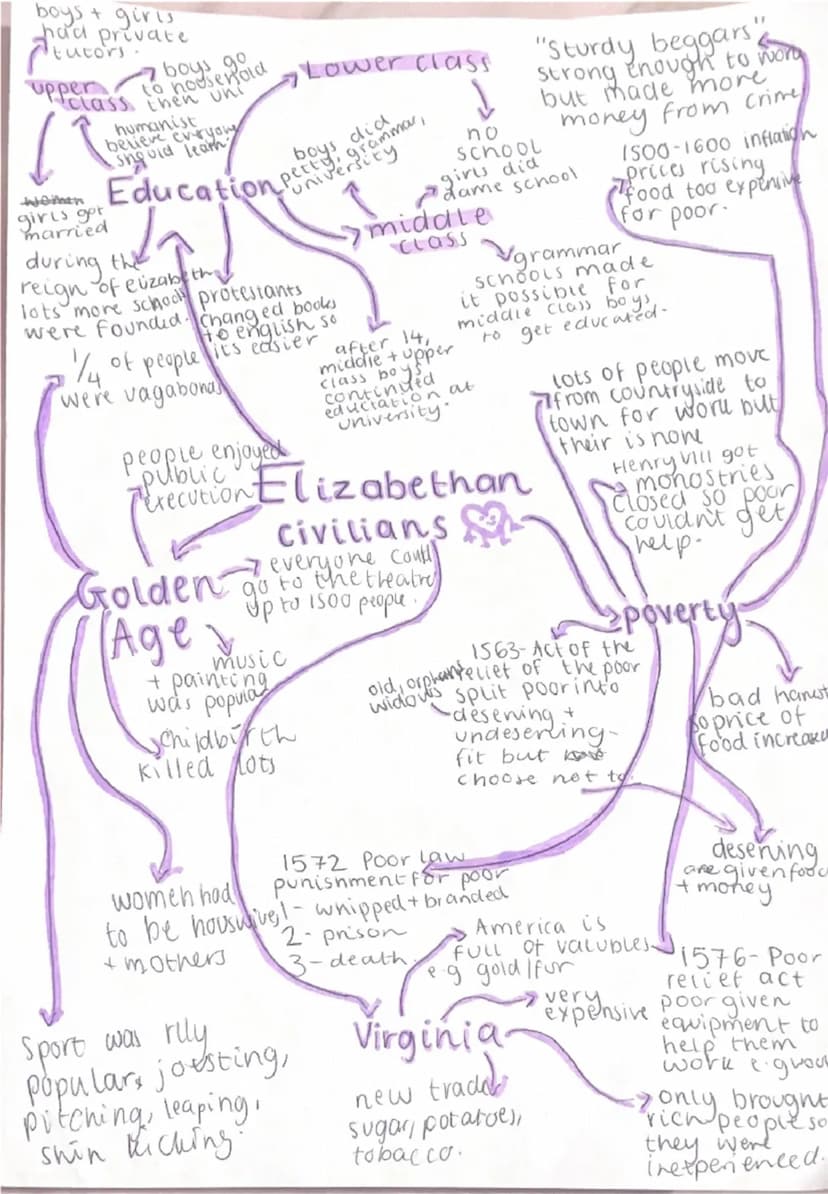 boys + girls
had private
tutors.
upper
class
boys go
to household
then uni
humanist
believe everyone
should learn
Lower class
no
school
"Sturdy beggars"
strong enough to work
but made more
money from crime
1500-1600 inflation
prices rising
food too expensive
for poor.
Education
boys did
petty, grammar,
university
girls did
dame school
middle
class
girls got
married
grammar
schools made
it possible for
middle class boys
to get educated.
during the
reign of elizabeth
lots more schools
were founded.
protestants
changed books
to english so
it's easier
after 14,
middle + upper
class boys
continued
eductation at
university.
1/4 of people
were vagabonds
lots of people move
from countryside to
town for work but
their is none
Henry VIII got
monostries
closed so poor
couldn't get
help.
people enjoyed
public
execution
Elizabethan
civilians
Golden
Age
everyone could
go to the theatre
up to 1500 people.
music
+ painting
was popular
childbirth
killed lots
poverty
1563- Act of the
relief of the poor
split poor into
desening +
undesening-
fit but
choose not to
old, orphans
widows
bad harvest
so price of
food increased
desening
are given food
+ money
women had
to be houswives
+ mothers
1572 Poor law
punishment for poor
1- whipped + branded
2- prison
3- death.
America is
full of valubles
e.g gold/fur
very
expensive
Virginia
new trade
sugar, potatoes,
tobacco.
1576- Poor
relief act
poor given
equipment to
help them
work e.g wool
only brought
rich people so
they were
inexperienced.
Sport was rlly
popular, joesting,
pitching, leaping,
shin kicking.